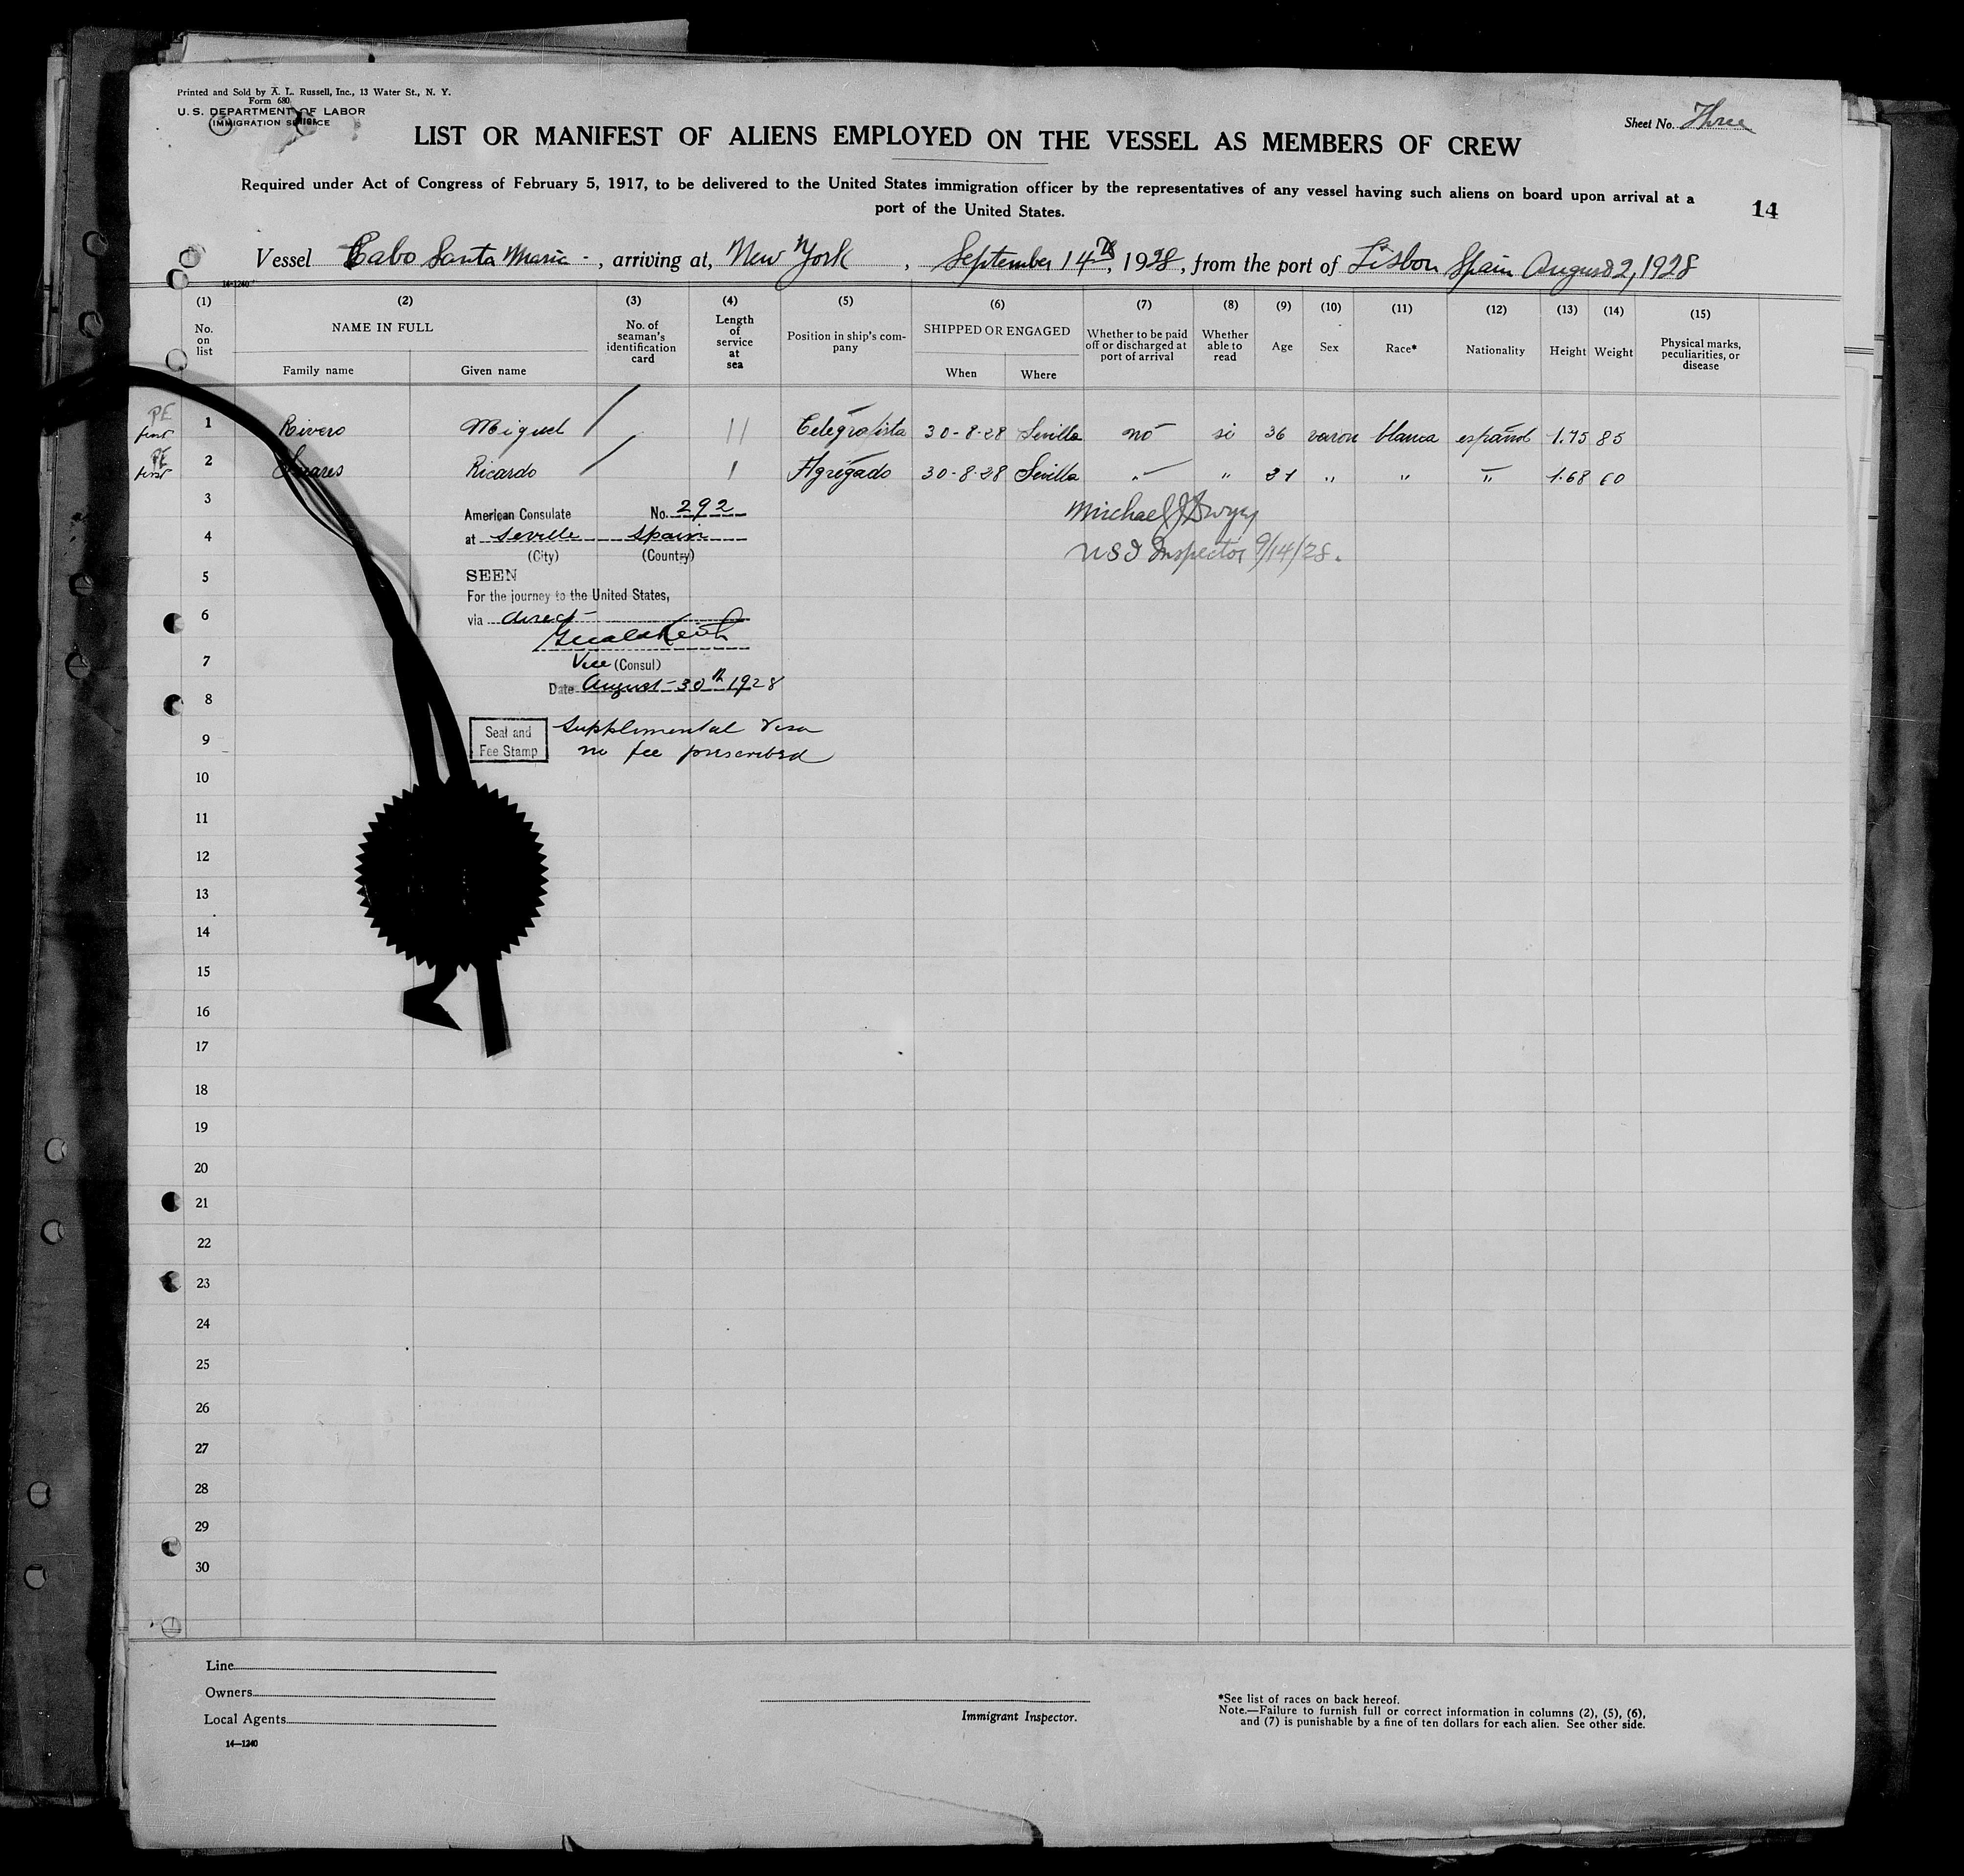 Printed and Sold by A. L. Russell, Inc., 13 Water St., N. Y.
Form 680
U. S. DEPARTMENT OF LABOR
IMMIGRATION SERVICE
Sheet No. Three
LIST OR MANIFEST OF ALIENS EMPLOYED ON THE VESSEL AS MEMBERS OF CREW
Required under Act of Congress of February 5, 1917, to be delivered to the United States immigration officer by the representatives of any vessel having such aliens on board upon arrival at a
port of the United States.
14
Vessel Cabo Santa Maria -, arriving at, New York, September 14th, 1928, from the port of Lisbon Spain August 2, 1928
14-1240
(1) (2) (3) (4) (5) (6) (7) (8) (9) (10) (11) (12) (13) (14) (15)
No. on list
NAME IN FULL
Family name Given name
No. of seaman's identification card
Length of service at sea
Position in ship's company
SHIPPED OR ENGAGED
When Where
Whether to be paid off or discharged at port of arrival
Whether able to read
Age Sex Race* Nationality Height Weight
Physical marks, peculiarities, or disease
PE first 1 Rivero Miguel / 11 Telegrafista 30-8-28 Sevilla no si 36 varon blanca español 1.75 85
PE first 2 Ricardo / 1 Agregado 30-8-28 Sevilla " " " " " 1.68 60
3
American Consulate No. 292
Michael J Dwyer
4
at Seville Spain
(City) (Country)
USI Inspector 9/14/28.
5
SEEN
For the journey to the United States,
6
via direct
7
Vice (Consul)
Date August 30th 1928
8
9
Seal and Fee Stamp
Supplimental Visa
no fee prescribed
10
11
12
13
14
15
16
17
18
19
20
21
22
23
24
25
26
27
28
29
30
Line
Owners
Local Agents
14—1240
Immigrant Inspector.
*See list of races on back hereof.
Note.—Failure to furnish full or correct information in columns (2), (5), (6),
and (7) is punishable by a fine of ten dollars for each alien. See other side.